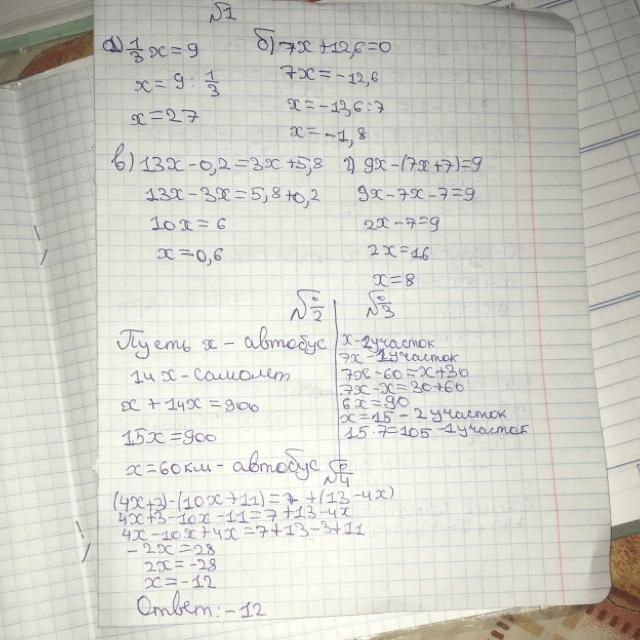 №1
а) 1/3 x = 9
x = 9 : 1/3
x = 27
б) 7x + 12,6 = 0
7x = -12,6
x = -12,6 : 7
x = -1,8
в) 13x - 0,2 = 3x + 5,8
13x - 3x = 5,8 + 0,2
10x = 6
x = 0,6
г) 9x - (7x + 7) = 9
9x - 7x - 7 = 9
2x - 7 = 9
2x = 16
x = 8
№2
Пусть x - автобус
14x - самолет
x + 14x = 900
15x = 900
x = 60 км - автобус
№3
x - 2 участок
7x - 1 участок
7x - 60 = x + 30
7x - x = 30 + 60
6x = 90
x = 15 - 2 участок
15 · 7 = 105 - 1 участок
№4
(4x + 3) - (10x + 11) = 7 + (13 - 4x)
4x + 3 - 10x - 11 = 7 + 13 - 4x
4x - 10x + 4x = 7 + 13 - 3 + 11
-2x = 28
2x = -28
x = -12
Ответ: -12